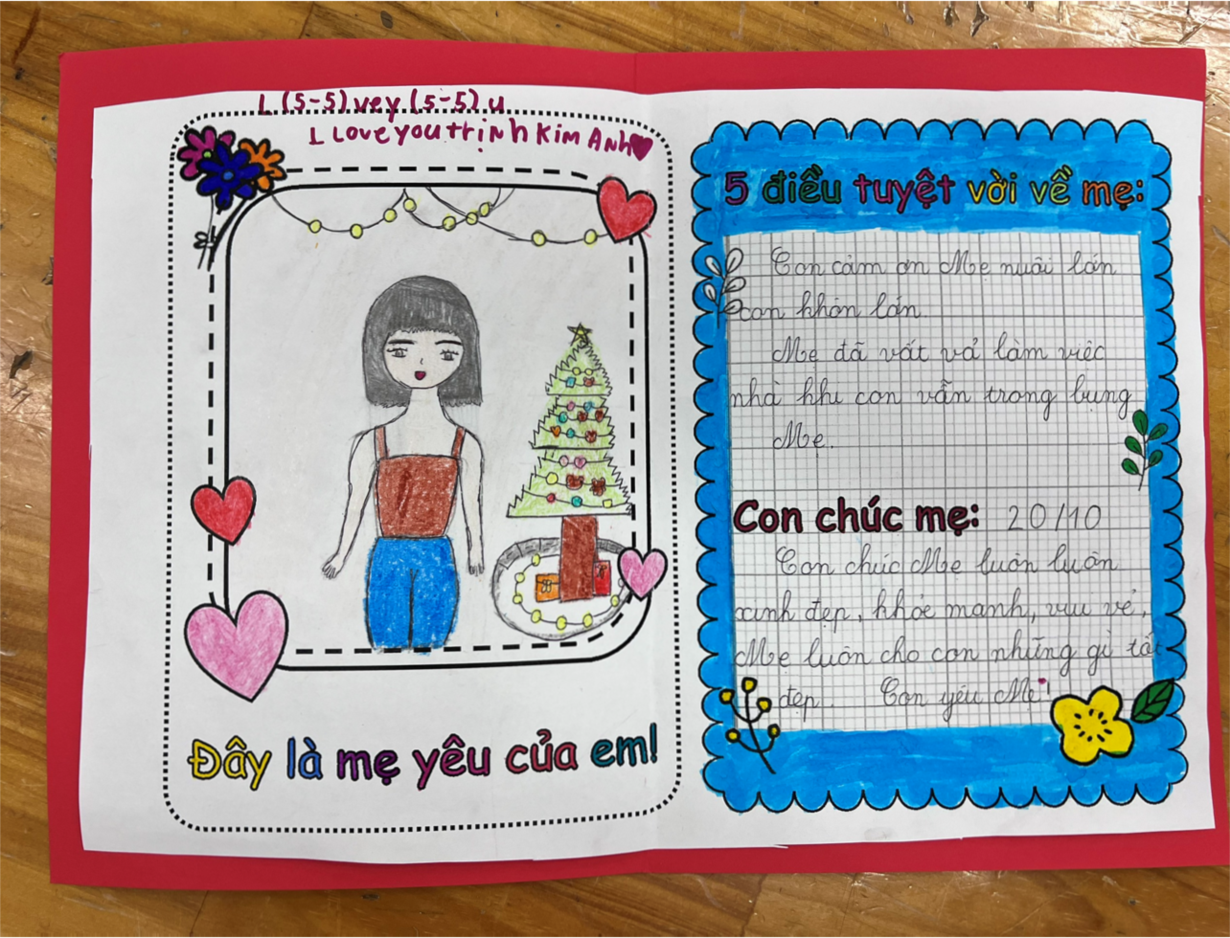 L (5-5) vey (5-5) u
L Love you trịnh Kim Anh
Đây là mẹ yêu của em!
5 điều tuyệt vời về mẹ:
Con cảm ơn Mẹ nuôi lớn
con khôn lớn.
Mẹ đã vất vả làm việc
nhà khi con vẫn trong bụng
Mẹ.
Con chúc mẹ: 20/10
Con chúc Mẹ luôn luôn
xinh đẹp, khỏe mạnh, vui vẻ,
Mẹ luôn cho con những gì tốt
đẹp. Con yêu Mẹ!